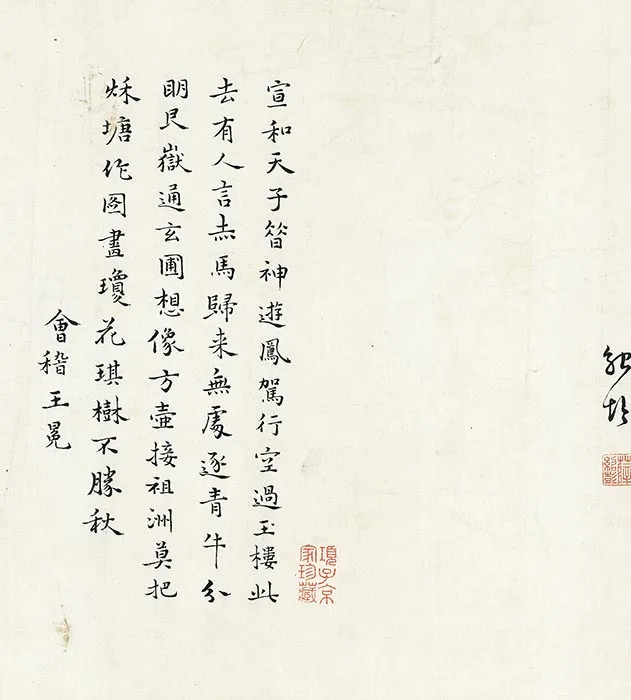 項子京家珍藏
宣和天子昔神遊鳳駕行空過玉樓此
去有人言赤馬歸来無處逐青牛分
明艮嶽通玄圃想像方壺接祖洲莫把
秌塘作圖畫瓊花琪樹不勝秋
會稽王冕